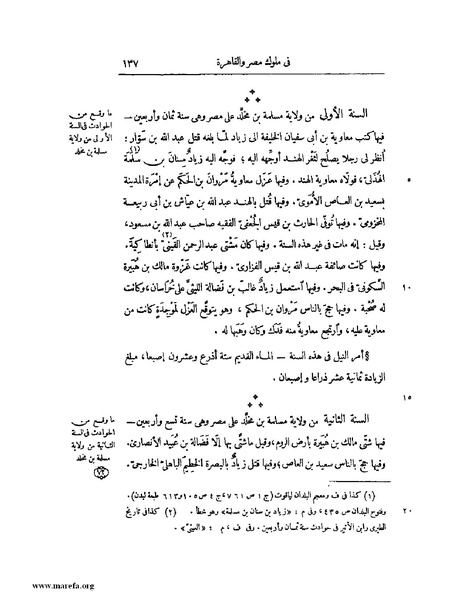 فى ملوك مصر والقاهرة ١٣٧
السنة الأولى من ولاية مسلمة بن مخلَّد على مصر وهى سنة ثمان وأربعين —
ما وقع من الحوادث فى السنة الأولى من ولاية مسلمة بن مخلد
فيها كتب معاوية بن أبى سفيان الخليفة الى زياد لما بلغه قتل عبد الله بن سَوّار :
أنظر لى رجلا يصلُح لثَغْر الهند أوجّهه اليه ؛ فوجّه اليه زيادٌ سِنان بن سَلَمة (١)
٥ الهُذَلىّ، فولّاه معاوية الهند . وفيها عَزَل معاويةُ مَرْوان بن الحَكَم عن إمْرة المدينة
بسعيد بن العاص الأموىّ . وفيها قُتل بالهند عبد الله بن عيّاش بن أبى ربيعة
المخزومىّ . وفيها تُوفّى الحارث بن قيس الجُعْفىّ الفقيه صاحب عبد الله بن مسعود،
وقيل : إنه مات فى غير هذه السنة . وفيها كان مَشْتى عبد الرحمن القَينىّ (٢) بأنطاكِيَة .
وفيها كانت صائفة عبد الله بن قيس الفزارىّ . وفيها كانت غَزْوة مالك بن هُبَيرة
١٠ السَّكونىّ فى البحر . وفيها استعمل زيادٌ غالبَ بن فَضالة الليثىّ على خُراسان، وكانت
له صُحْبة . وفيها حجّ بالناس مَرْوان بن الحكم ، وهو يتوقّع العَزْل لمَوْجِدَةٍ كانت من
معاوية عليه، وارتجع معاويةُ منه فَدَك وكان وهَبها له .
§ أمر النيل فى هذه السنة — الماء القديم ستة أذرع وعشرون إصبعا، مبلغ
الزيادة ثمانية عشر ذراعا وإصبعان .
١٥
السنة الثانية من ولاية مسلمة بن مخلَّد على مصر وهى سنة تسع وأربعين —
ما وقع من الحوادث فى السنة الثانية من ولاية مسلمة بن مخلد
فيها شتّى مالك بن هُبَيرة بأرض الروم، وقيل ما شتّى بها إلّا فَضالة بن عُبَيد الأنصارىّ .
وفيها حجّ بالناس سعيد بن العاص، وفيها قتل زيادٌ بالبصرة الخَطِيمَ الباهلىّ الخارجىّ .
(١) كذا فى ف ومعجم البلدان لياقوت (ج ١ ص ٧٦١، ج ٤ ص ١٠٥ و ٦١٣ طبعة ليدن)
٢٠ وفتوح البلدان ص ٤٣٥، وفى م : «زياد بن سنان بن مسلمة» وهو خطأ . (٢) كذا فى تاريخ
الطبرى وابن الأثير فى حوادث سنة ثمان وأربعين . وفى ف ، م : «العينى» .
www.marefa.org